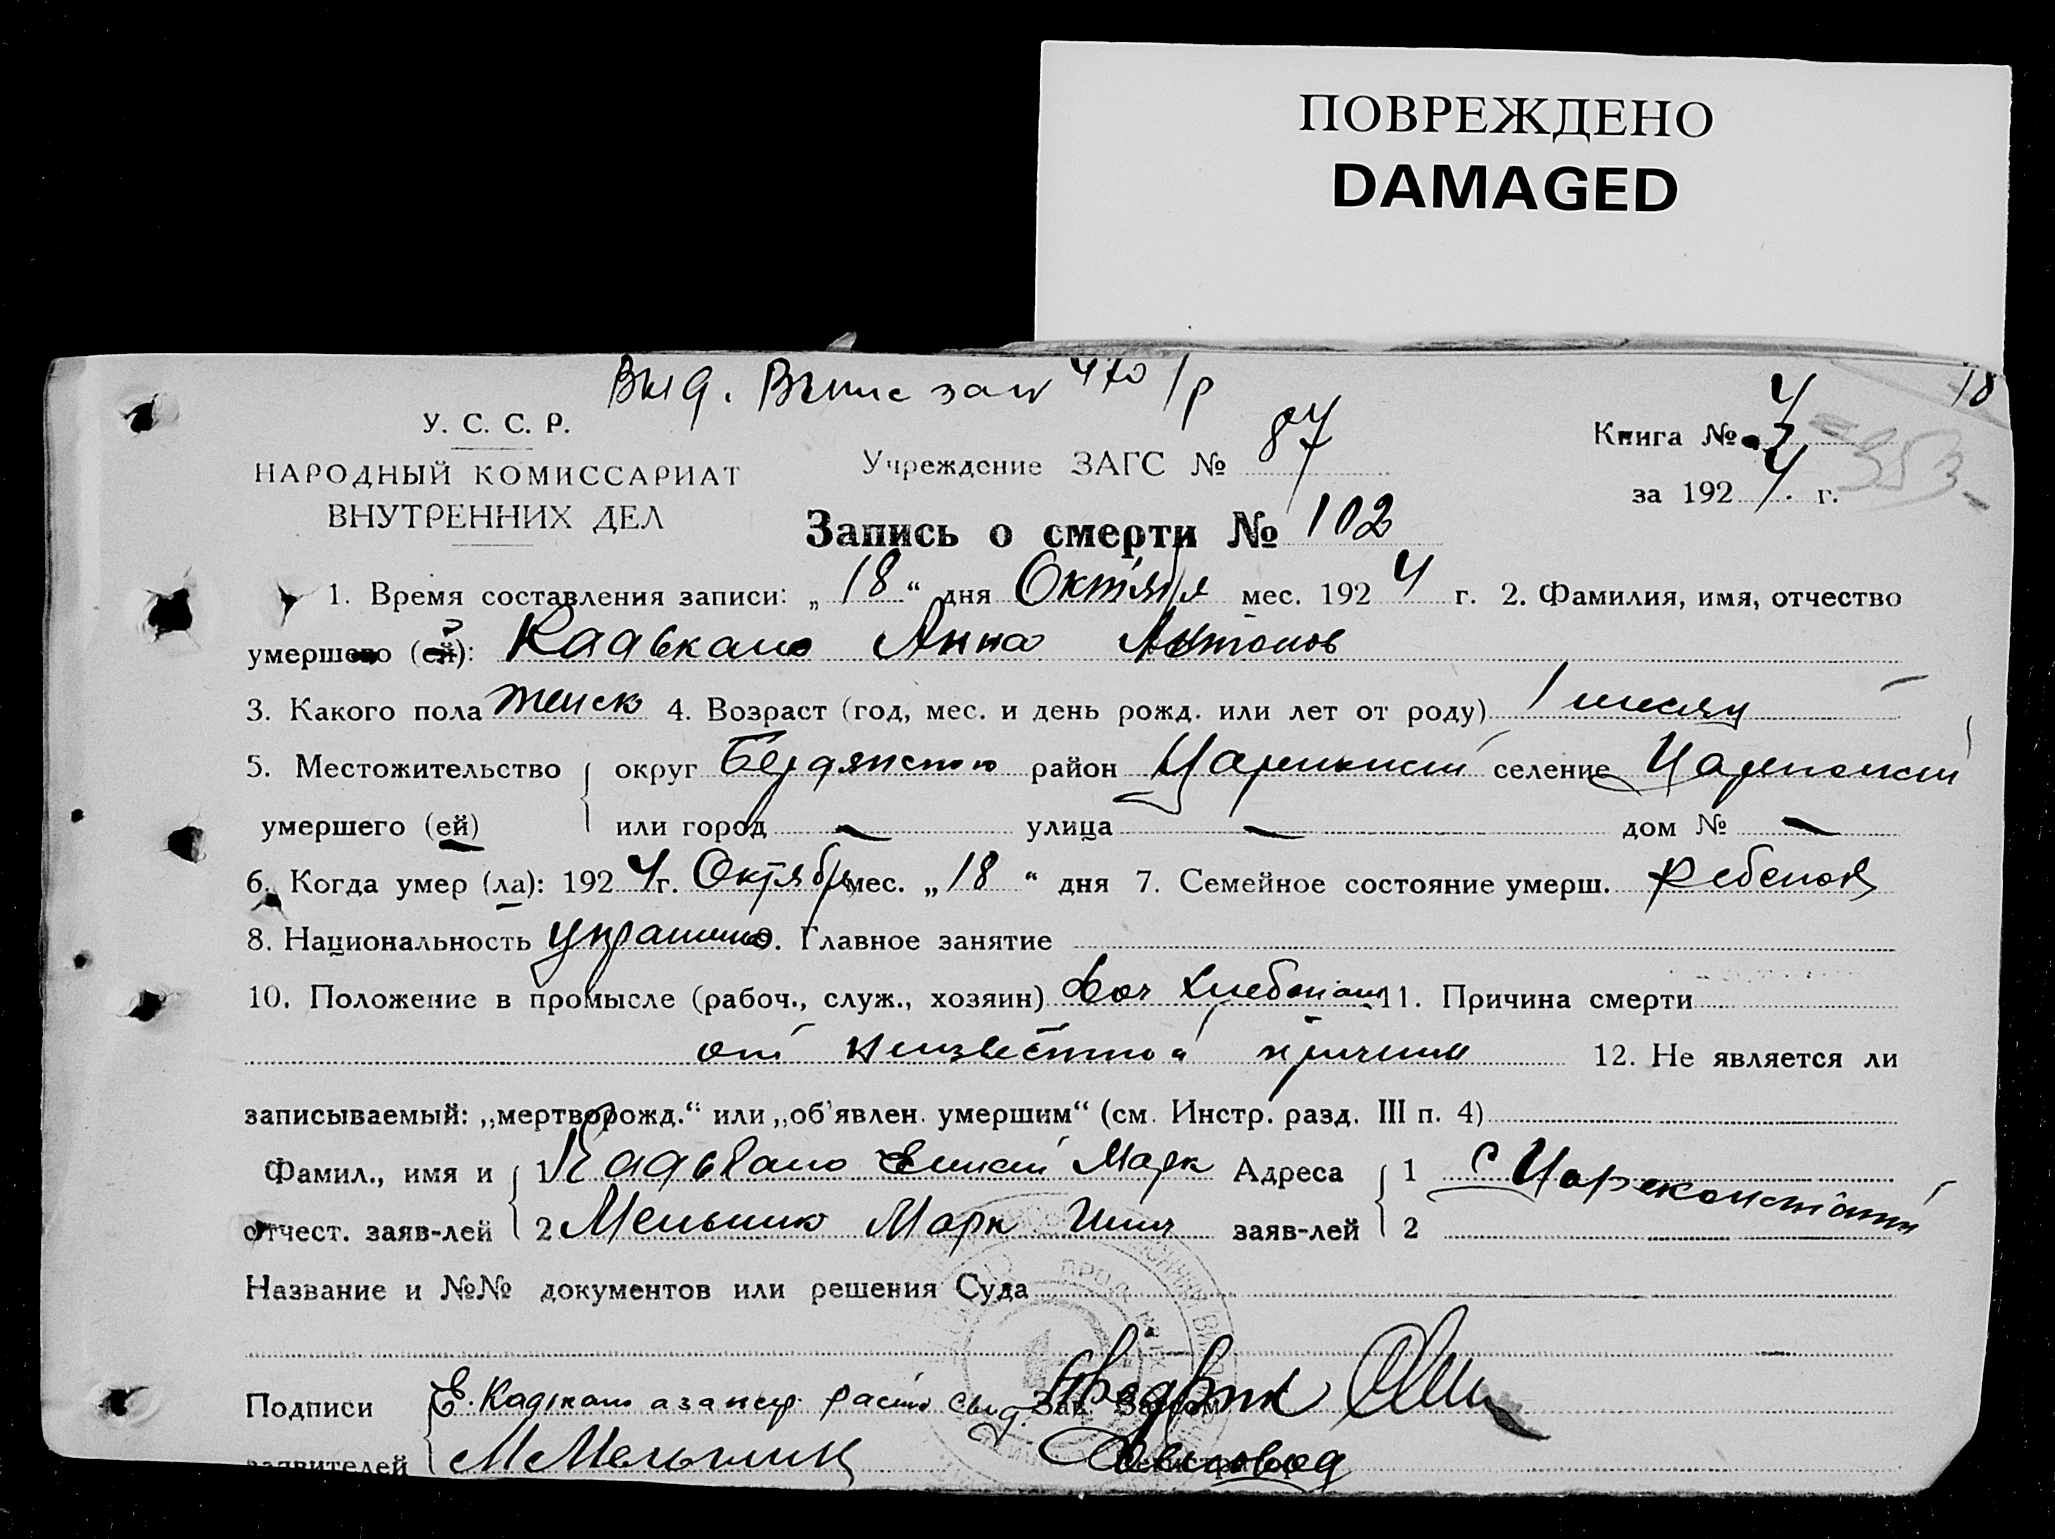 ПОВРЕЖДЕНО
DAMAGED
Выд. Выпис зам 470/р
18
У. С. С. Р.
НАРОДНЫЙ КОМИССАРИАТ
ВНУТРЕННИХ ДЕЛ
Учреждение ЗАГС № 87
Книга № 4
353
за 1924 г.
Запись о смерти № 102
1. Время составления записи: „18“ дня Октября мес. 1924 г. 2. Фамилия, имя, отчество
умершего (ей): Кадькало Анна Антонов
3. Какого пола женск 4. Возраст (год, мес. и день рожд. или лет от роду) 1 месяц
5. Местожительство округ Бердянского район селение
умершего (ей) или город — улица — дом № —
6. Когда умер (ла): 1924 г. Октября мес. „18“ дня 7. Семейное состояние умерш. ребенок
8. Национальность 9. Главное занятие
10. Положение в промысле (рабоч., служ., хозяин) 11. Причина смерти
от неизвестной причины 12. Не является ли
записываемый: „мертворожд.“ или „об'явлен. умершим“ (см. Инстр. разд. III п. 4)
Фамил., имя и 1 Марк Адреса 1 с Цареконстант
отчест. заяв-лей 2 Мельник Марк заяв-лей 2
Название и №№ документов или решения Суда
Подписи Е. Кадькало
заявителей М Мельник Деловод